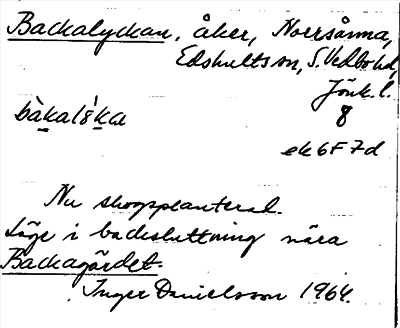 Backalyckan, åker, Norrsånna,
Edshults sn, S. Vedbo hd,
Jönk. l.
bàkalỳka 8
ek 6F 7d
Nu skogsplanterad.
Läge i backsluttning nära
Backagärdet.
Inger Danielsson 1964.